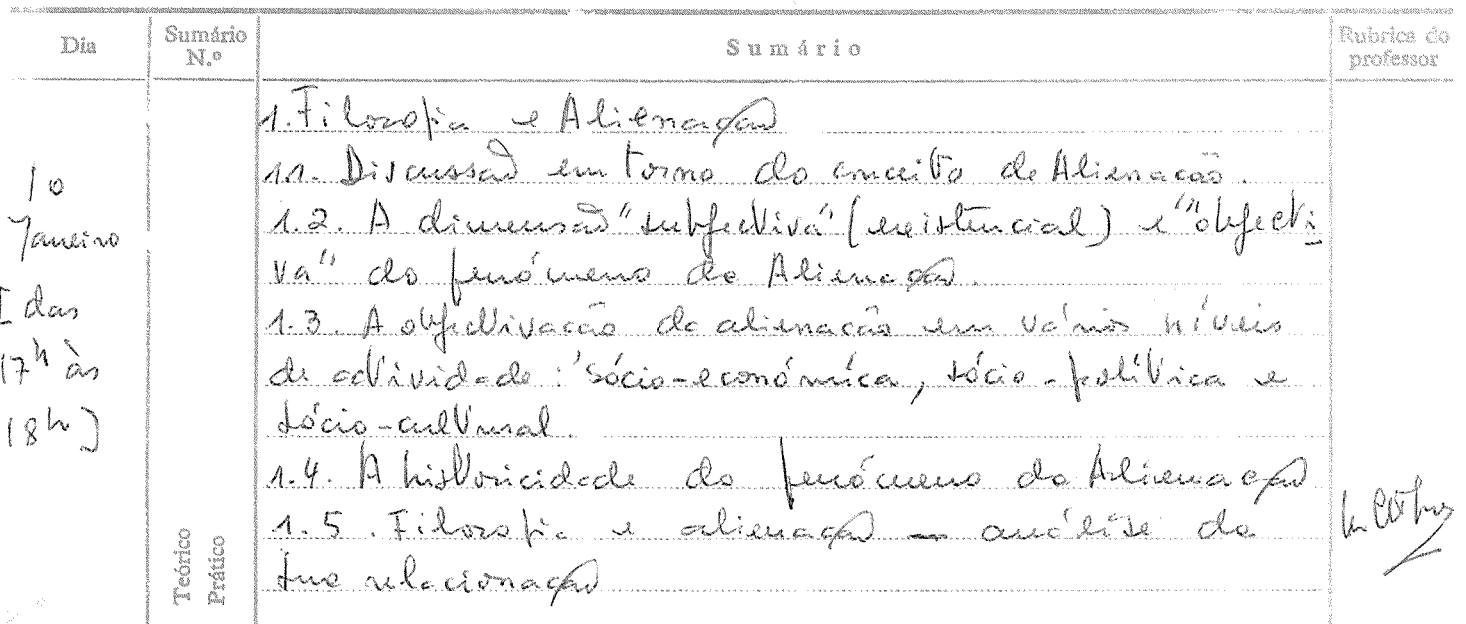 Dia
Sumário
N.º
Sumário
Rubrica do
professor
10
Janeiro
[das
17h às
18h]
1. Filosofia e Alienação
1.1. Discussão em torno do conceito de Alienação.
1.2. A dimensão "subjectiva" (existencial) e "objecti-
va" do fenómeno da Alienação.
1.3. A objectivação da alienação em vários níveis
de actividade: sócio-económica, sócio-política e
sócio-cultural.
1.4. A historicidade do fenómeno da Alienação
1.5. Filosofia e alienação — análise da
sua relacionação
Teórico
Prático